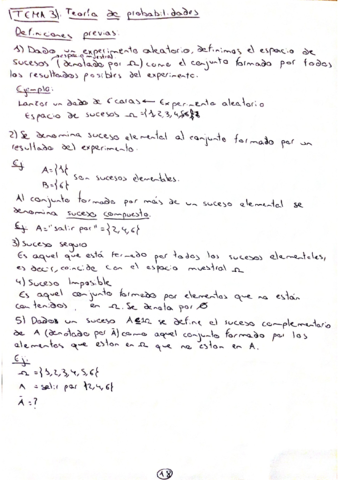 TEMA 3. Teoría de probabilidades
Definiciones previas:
1) Dado un experimento aleatorio, definimos el espacio de
espacio muestral
sucesos (denotado por Ω) como el conjunto formado por todos
los resultados posibles del experimento.
Ejemplo:
Lanzar un dado de 6 caras ← Experimento aleatorio
Espacio de sucesos Ω = {1,2,3,4,5,6}
2) Se denomina suceso elemental al conjunto formado por un
resultado del experimento.
Ej A={1}
B={6} son sucesos elementales.
Al conjunto formado por más de un suceso elemental se
denomina suceso compuesto.
Ej A="salir par"={2,4,6}
3) Suceso seguro
Es aquel que está formado por todos los sucesos elementales,
es decir, coincide con el espacio muestral Ω
4) Suceso Imposible
Es aquel conjunto formado por elementos que no están
contenidos en Ω. Se denota por Ø
5) Dados un suceso A Ω se define el suceso complementario
de A (denotado por Ā) como aquel conjunto formado por los
elementos que estan en Ω que no estan en A.
Ej:
Ω = {1,2,3,4,5,6}
A = salir par {2,4,6}
Ā = ?